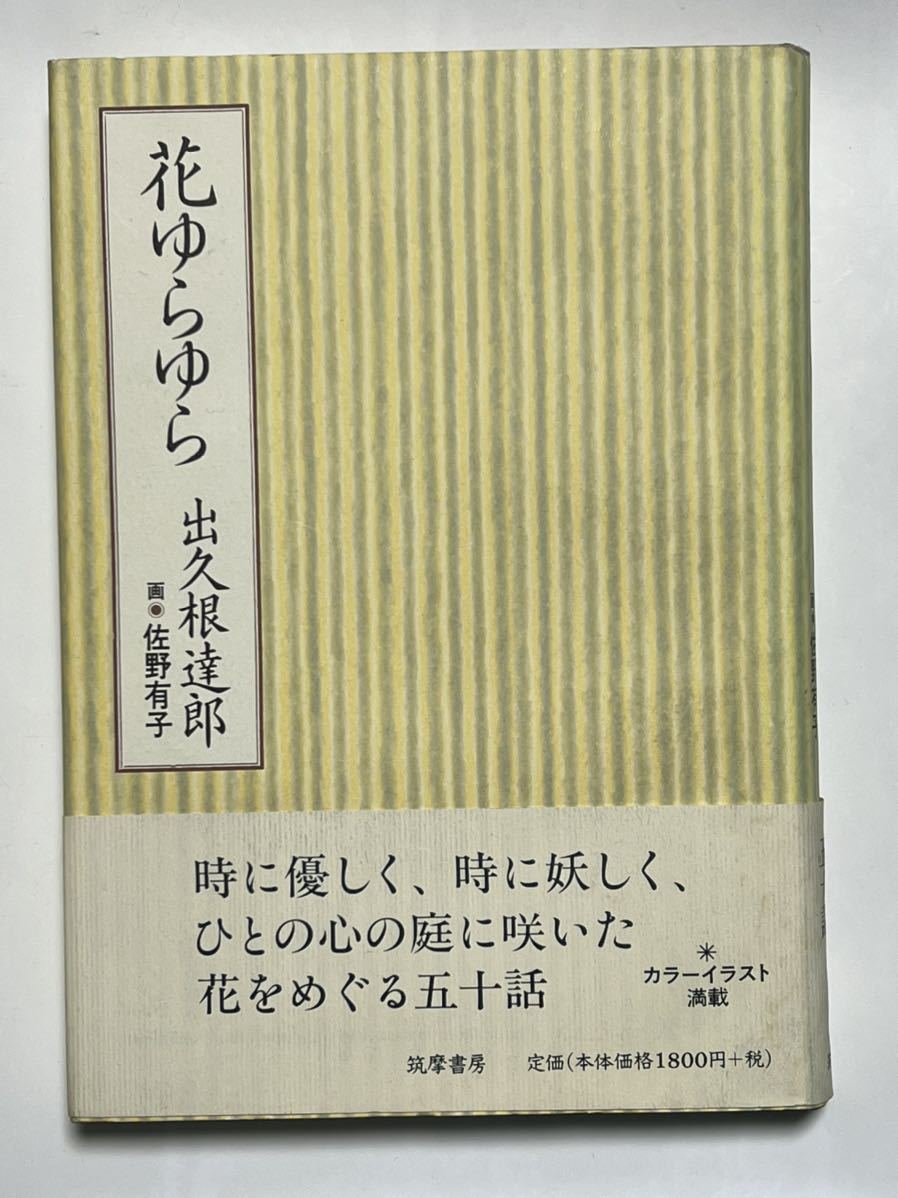 花ゆらゆら
出久根達郎
画◉佐野有子
時に優しく、時に妖しく、
ひとの心の庭に咲いた
花をめぐる五十話
＊
カラーイラスト
満載
筑摩書房
定価(本体価格1800円+税)